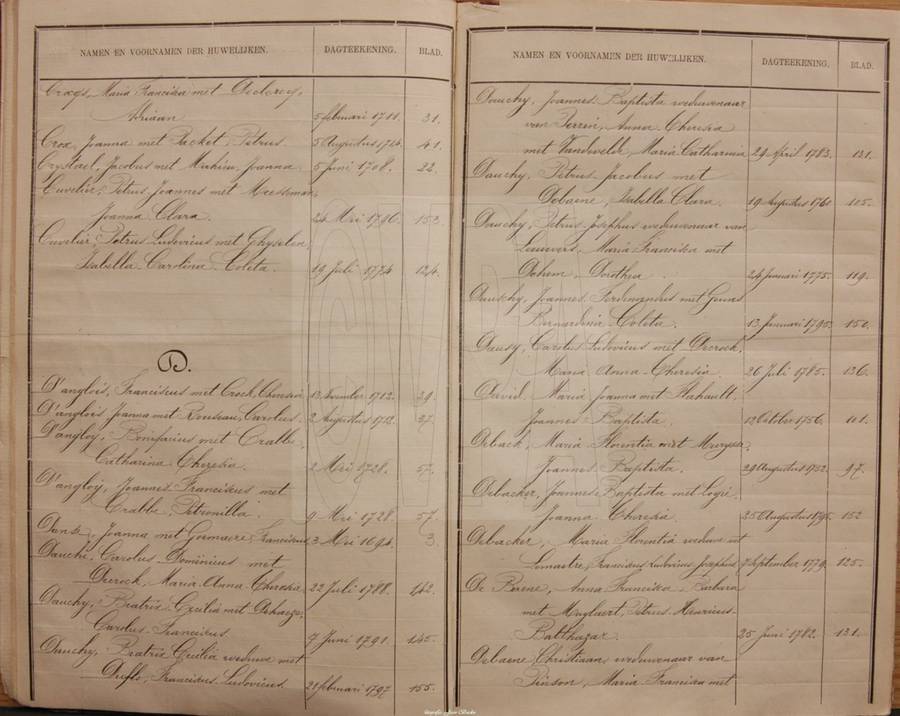 NAMEN EN VOORNAMEN DER HUWELIJKEN. DAGTEEKENING. BLAD.
Craeys, Maria Franciska met Declercq,
Adriaan 5 februari 1711. 31.
Crox, Joanna met Packet, Petrus. 5 Augustus 1724. 41.
Crystael, Jacobus met Joanna. 5 Juni 1708. 22.
Cuvelier, Petrus Joannes met Meesseman,
Joanna Clara. 24 Mei 1796. 153.
Cuvelier, Petrus Ludovicus met Ghyselen,
Isabella Carolina Coleta. 19 Juli 1774 124.
D.
D'anglois, Franciscus met Crock, Theresia 13 November 1712. 29.
D'anglois Joanna met Rouseau, Carolus. 2 Augustus 1712. 27.
Dangloy, Bonifacius met Crabbe,
Catharina Theresia. 2 Mei 1728. 57.
D'angloy, Joannes Franciskus met
Crabbe, Petronilla. 9 Mei 1728. 57.
Dansk, Joanna met Gormaere, Franciscus 3 Mei 1694. 3.
Dauchi, Carolus Dominicus met
Derock, Maria Anna Theresia 22 Juli 1788. 142.
Dauchy, Beatrix Cecilia met
Carolus Franciskus 7 Juni 1791. 145.
Dauchy, Beatrix Cecilia weduwe met
Duflo, Franciskus Ludovicus. 21 februari 1797. 155.
NAMEN EN VOORNAMEN DER HUWELIJKEN. DAGTEEKENING. BLAD.
Dauchy, Joannes Baptista weduwenaar
van Perrein, Anna Theresia
met Vandwelde, Maria Catharina 29 April 1783. 131.
Dauchy, Petrus Jacobus met
Debaene, Isabella Clara. 19 Augustus 1760 105.
Dauchy, Petrus Josephus weduwenaar van
Leuwers, Maria Franciska met
Dehem, Dorothea. 24 Januari 1775. 119.
Dauschy, Joannes Ferdinandus met
Bernardina Coleta. 13 Januari 1795. 150.
Dausy, Carolus Ludovicus met Derock,
Maria Anna Theresia. 26 Juli 1785. 136.
David, Maria Joanna met Flahault,
Joannes Baptista. 12 October 1756. 101.
Deback, Maria Florentia met
Joannes Baptista. 29 Augustus 1752. 97.
Debacker, Joannes Baptista met Logie,
Joanna Theresia. 25 Augustus 1795. 152
Debacker, Maria Florentia weduwe uit
Lemaitre, Franciscus Ludovicus Josephus 7 September 1779. 125.
De Baene, Anna Franciska Barbara
met Muylaert, Petrus Henricus
Balthazar. 25 Juni 1782. 131.
Debaene Christiaan weduwenaar van
Pinson, Maria Franciska met